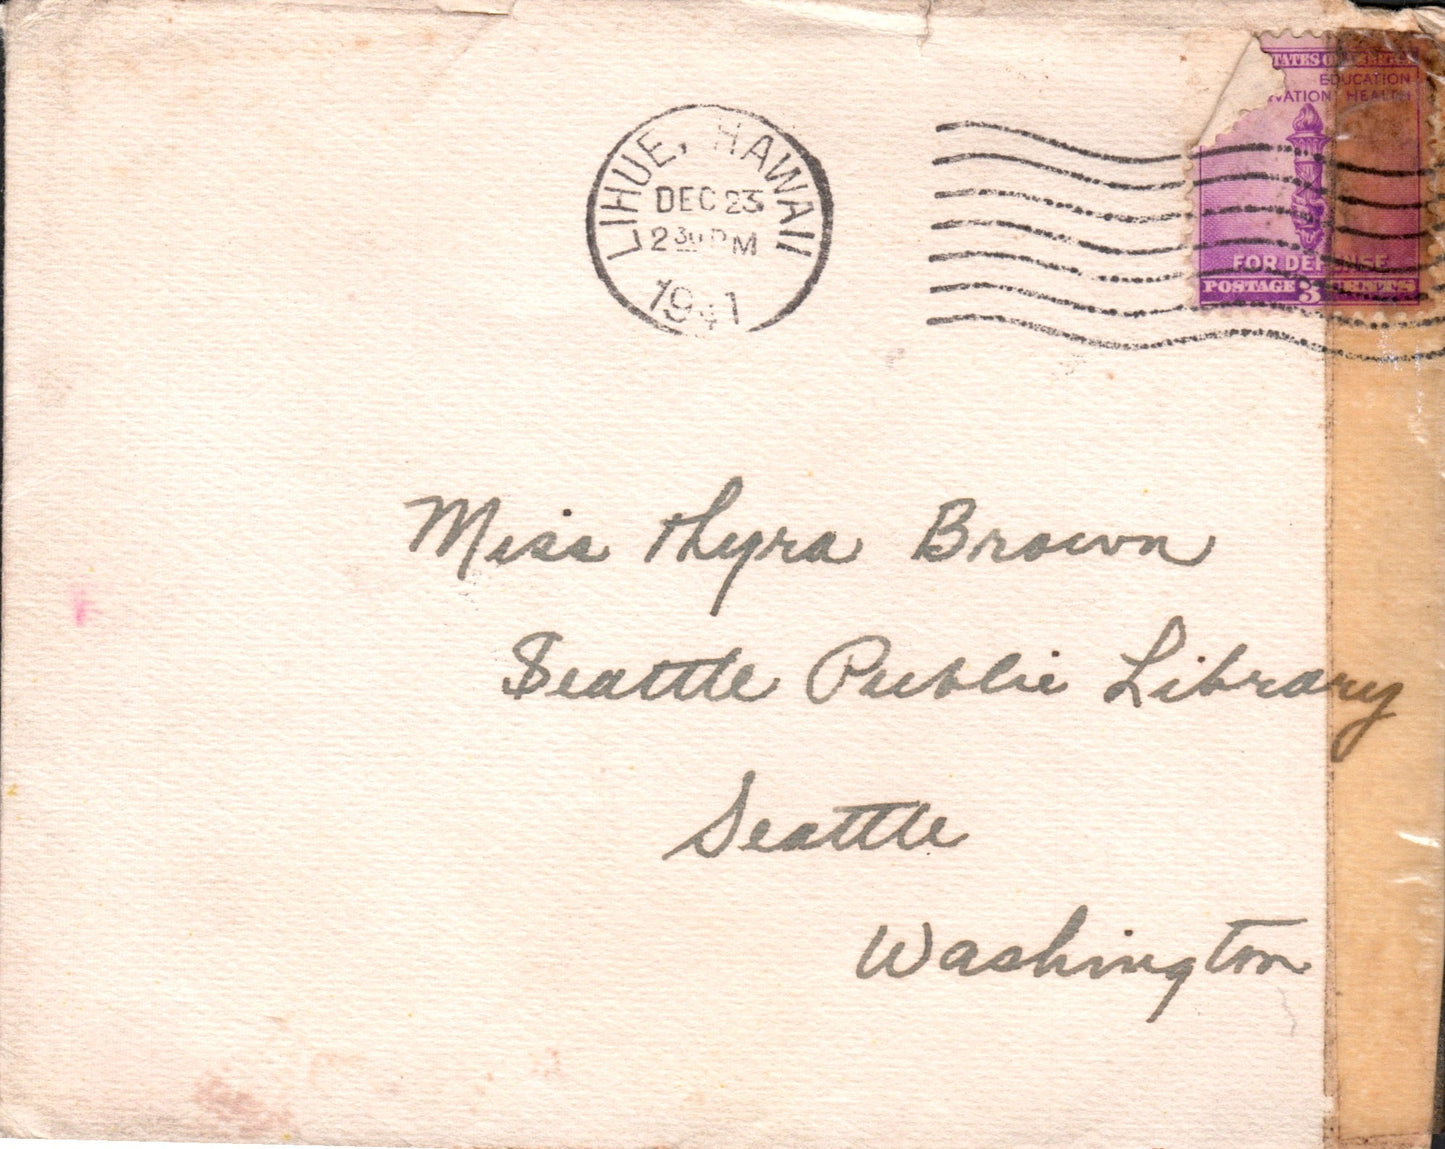 LIHUE, HAWAII
DEC 23
2 30 PM
1941
TATES O
EDUCATION
VATION HEALTH
FOR DEFENSE
POSTAGE 3 CENTS
Miss Thyra Brown
Seattle Public Library
Seattle
Washington